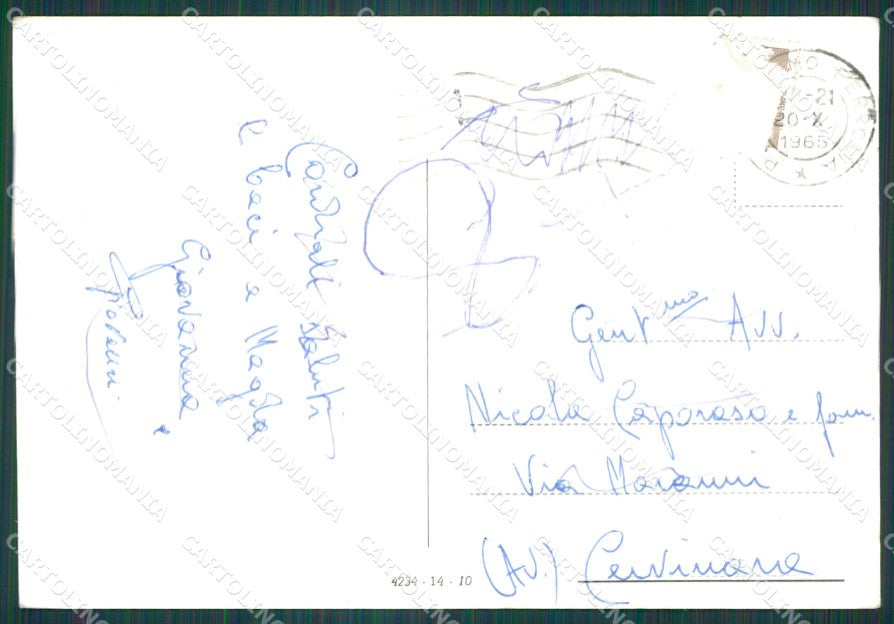 Cordiali saluti
e baci a Magda
Giovanna e
-21
10·X
1965
Gent.mo Avv.
Nicola Caporaso e fam.
Via Maranni
(AV.) Cervinara
4234 - 14 - 10
CARTOLINOMANIA